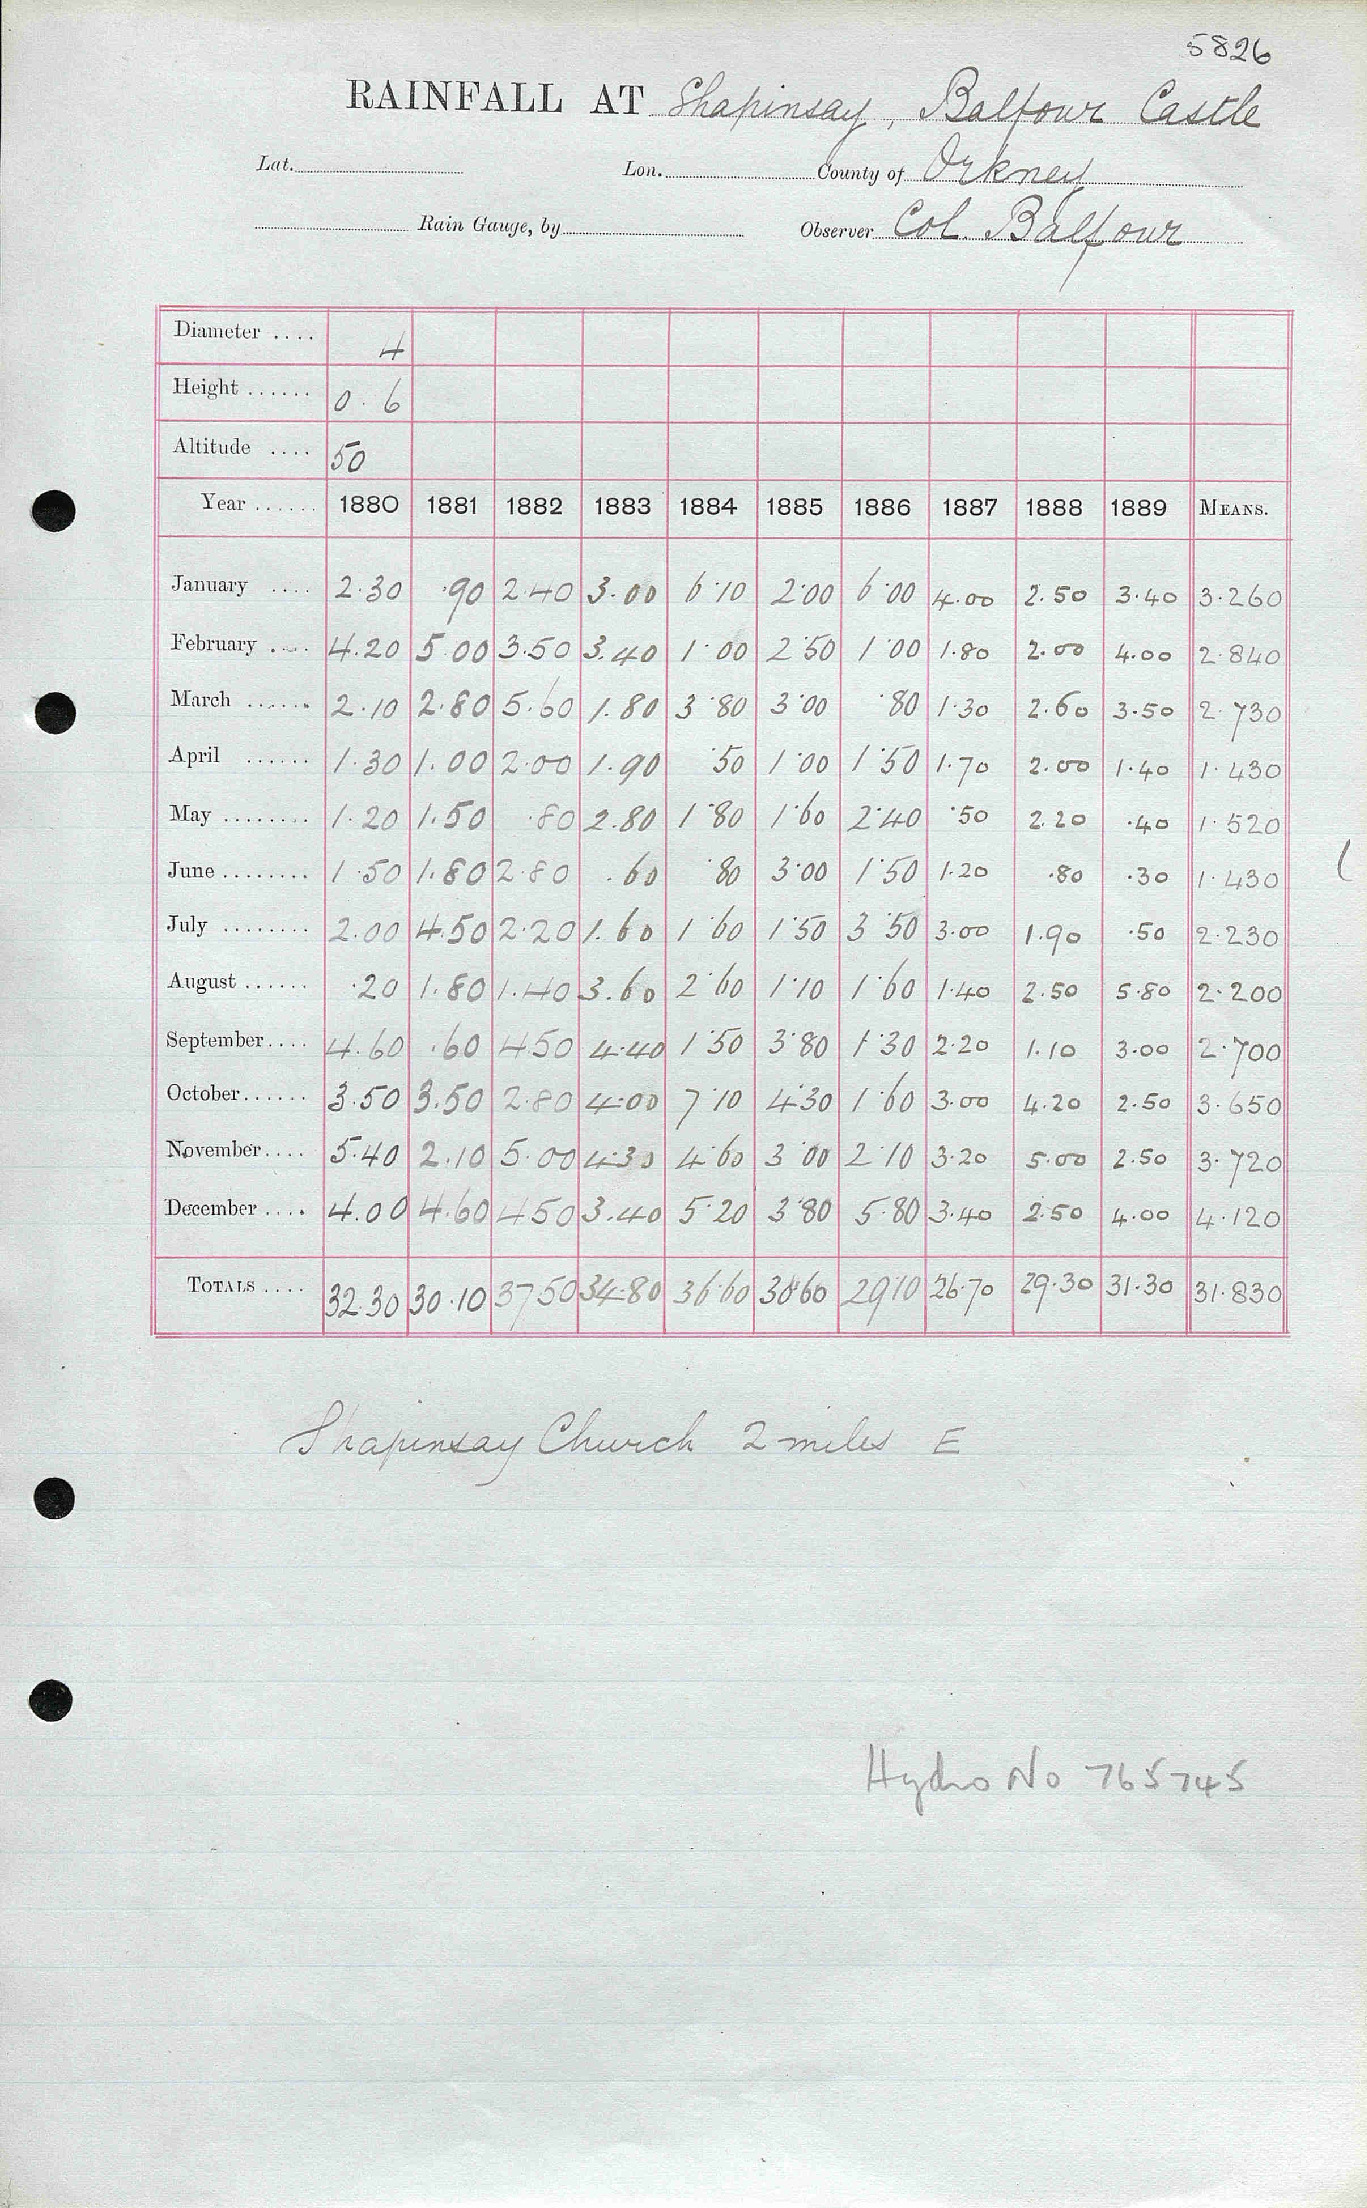 5826
RAINFALL AT Shapinsay, Balfour Castle
Lat. Lon. County of Orkney
Rain Gauge, by Observer Col. Balfour
Diameter .... 4
Height ...... 0.6
Altitude .... 50
Year ...... 1880 1881 1882 1883 1884 1885 1886 1887 1888 1889 MEANS.
January .... 2.30 .90 2.40 3.00 6.10 2.00 6.00 4.00 2.50 3.40 3.260
February .... 4.20 5.00 3.50 3.40 1.00 2.50 1.00 1.80 2.00 4.00 2.840
March ...... 2.10 2.80 5.60 1.80 3.80 3.00 .80 1.30 2.60 3.50 2.730
April ...... 1.30 1.00 2.00 1.90 .50 1.00 1.50 1.70 2.00 1.40 1.430
May ........ 1.20 1.50 .80 2.80 1.80 1.60 2.40 .50 2.20 .40 1.520
June ........ 1.50 1.80 2.80 .60 .80 3.00 1.50 1.20 .80 .30 1.430
July ........ 2.00 4.50 2.20 1.60 1.60 1.50 3.50 3.00 1.90 .50 2.230
August ...... .20 1.80 1.40 3.60 2.60 1.10 1.60 1.40 2.50 5.80 2.200
September.... 4.60 .60 4.50 4.40 1.50 3.80 1.30 2.20 1.10 3.00 2.700
October...... 3.50 3.50 2.80 4.00 7.10 4.30 1.60 3.00 4.20 2.50 3.650
November.... 5.40 2.10 5.00 4.30 4.60 3.00 2.10 3.20 5.00 2.50 3.720
December .... 4.00 4.60 4.50 3.40 5.20 3.80 5.80 3.40 2.50 4.00 4.120
TOTALS .... 32.30 30.10 37.50 34.80 36.60 30.60 29.10 26.70 29.30 31.30 31.830
Shapinsay Church 2 miles E
Hydro No 765745